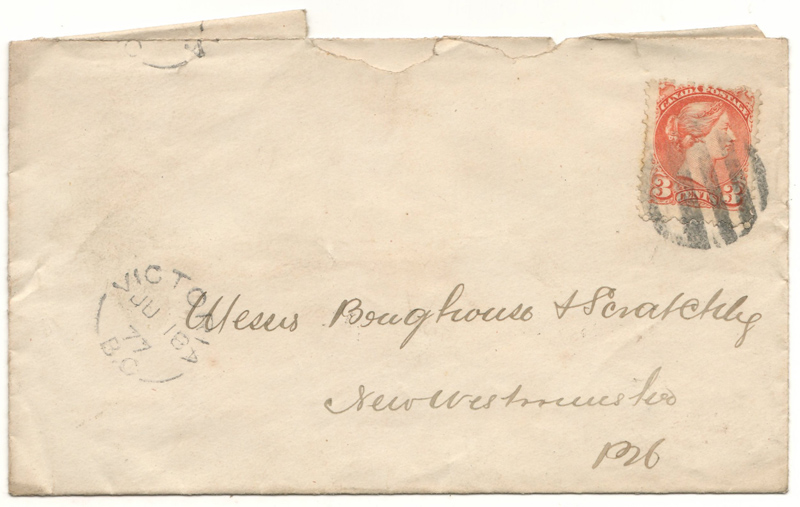 CANADA POSTAGE
3 CENTS 3
VICTORIA
JU 18
77
B.C
Messrs Boughouse & Scratchly
New Westminster
BC